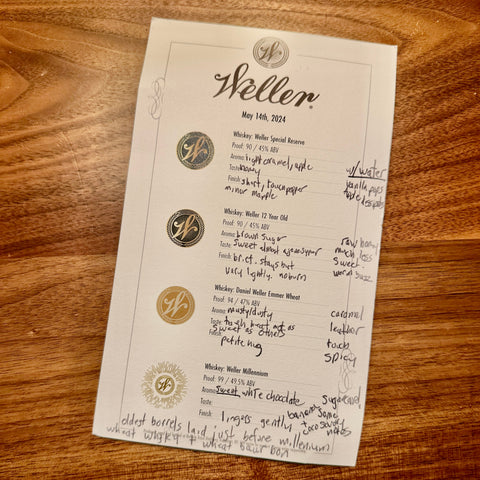 W
Weller
May 14th, 2024
Whiskey: Weller Special Reserve
Proof: 90 / 45% ABV
w/ water
Aroma: light caramel, apple
vanilla pops
Taste: honey
apple less
Finish: short, touch pepper
minor
W
Whiskey: Weller 12 Year Old
Proof: 90 / 45% ABV
Aroma: brown sugar
raw honey
Taste: sweet almost
much less
sweet
Finish: brief, stays but
very lightly. no burn
W
Whiskey: Daniel Weller Emmer Wheat
Proof: 94 / 47% ABV
caramel
Aroma: musty/dusty
leather
Taste: tough but not as
sweet as others
touch
Finish:
spicy
petite hug
W
Whiskey: Weller Millennium
Proof: 99 / 49.5% ABV
Aroma: sweet white chocolate
Taste:
banana some
Finish: lingers gently
notes
oldest barrels laid just before millennium
wheat whisky + wheat bourbon